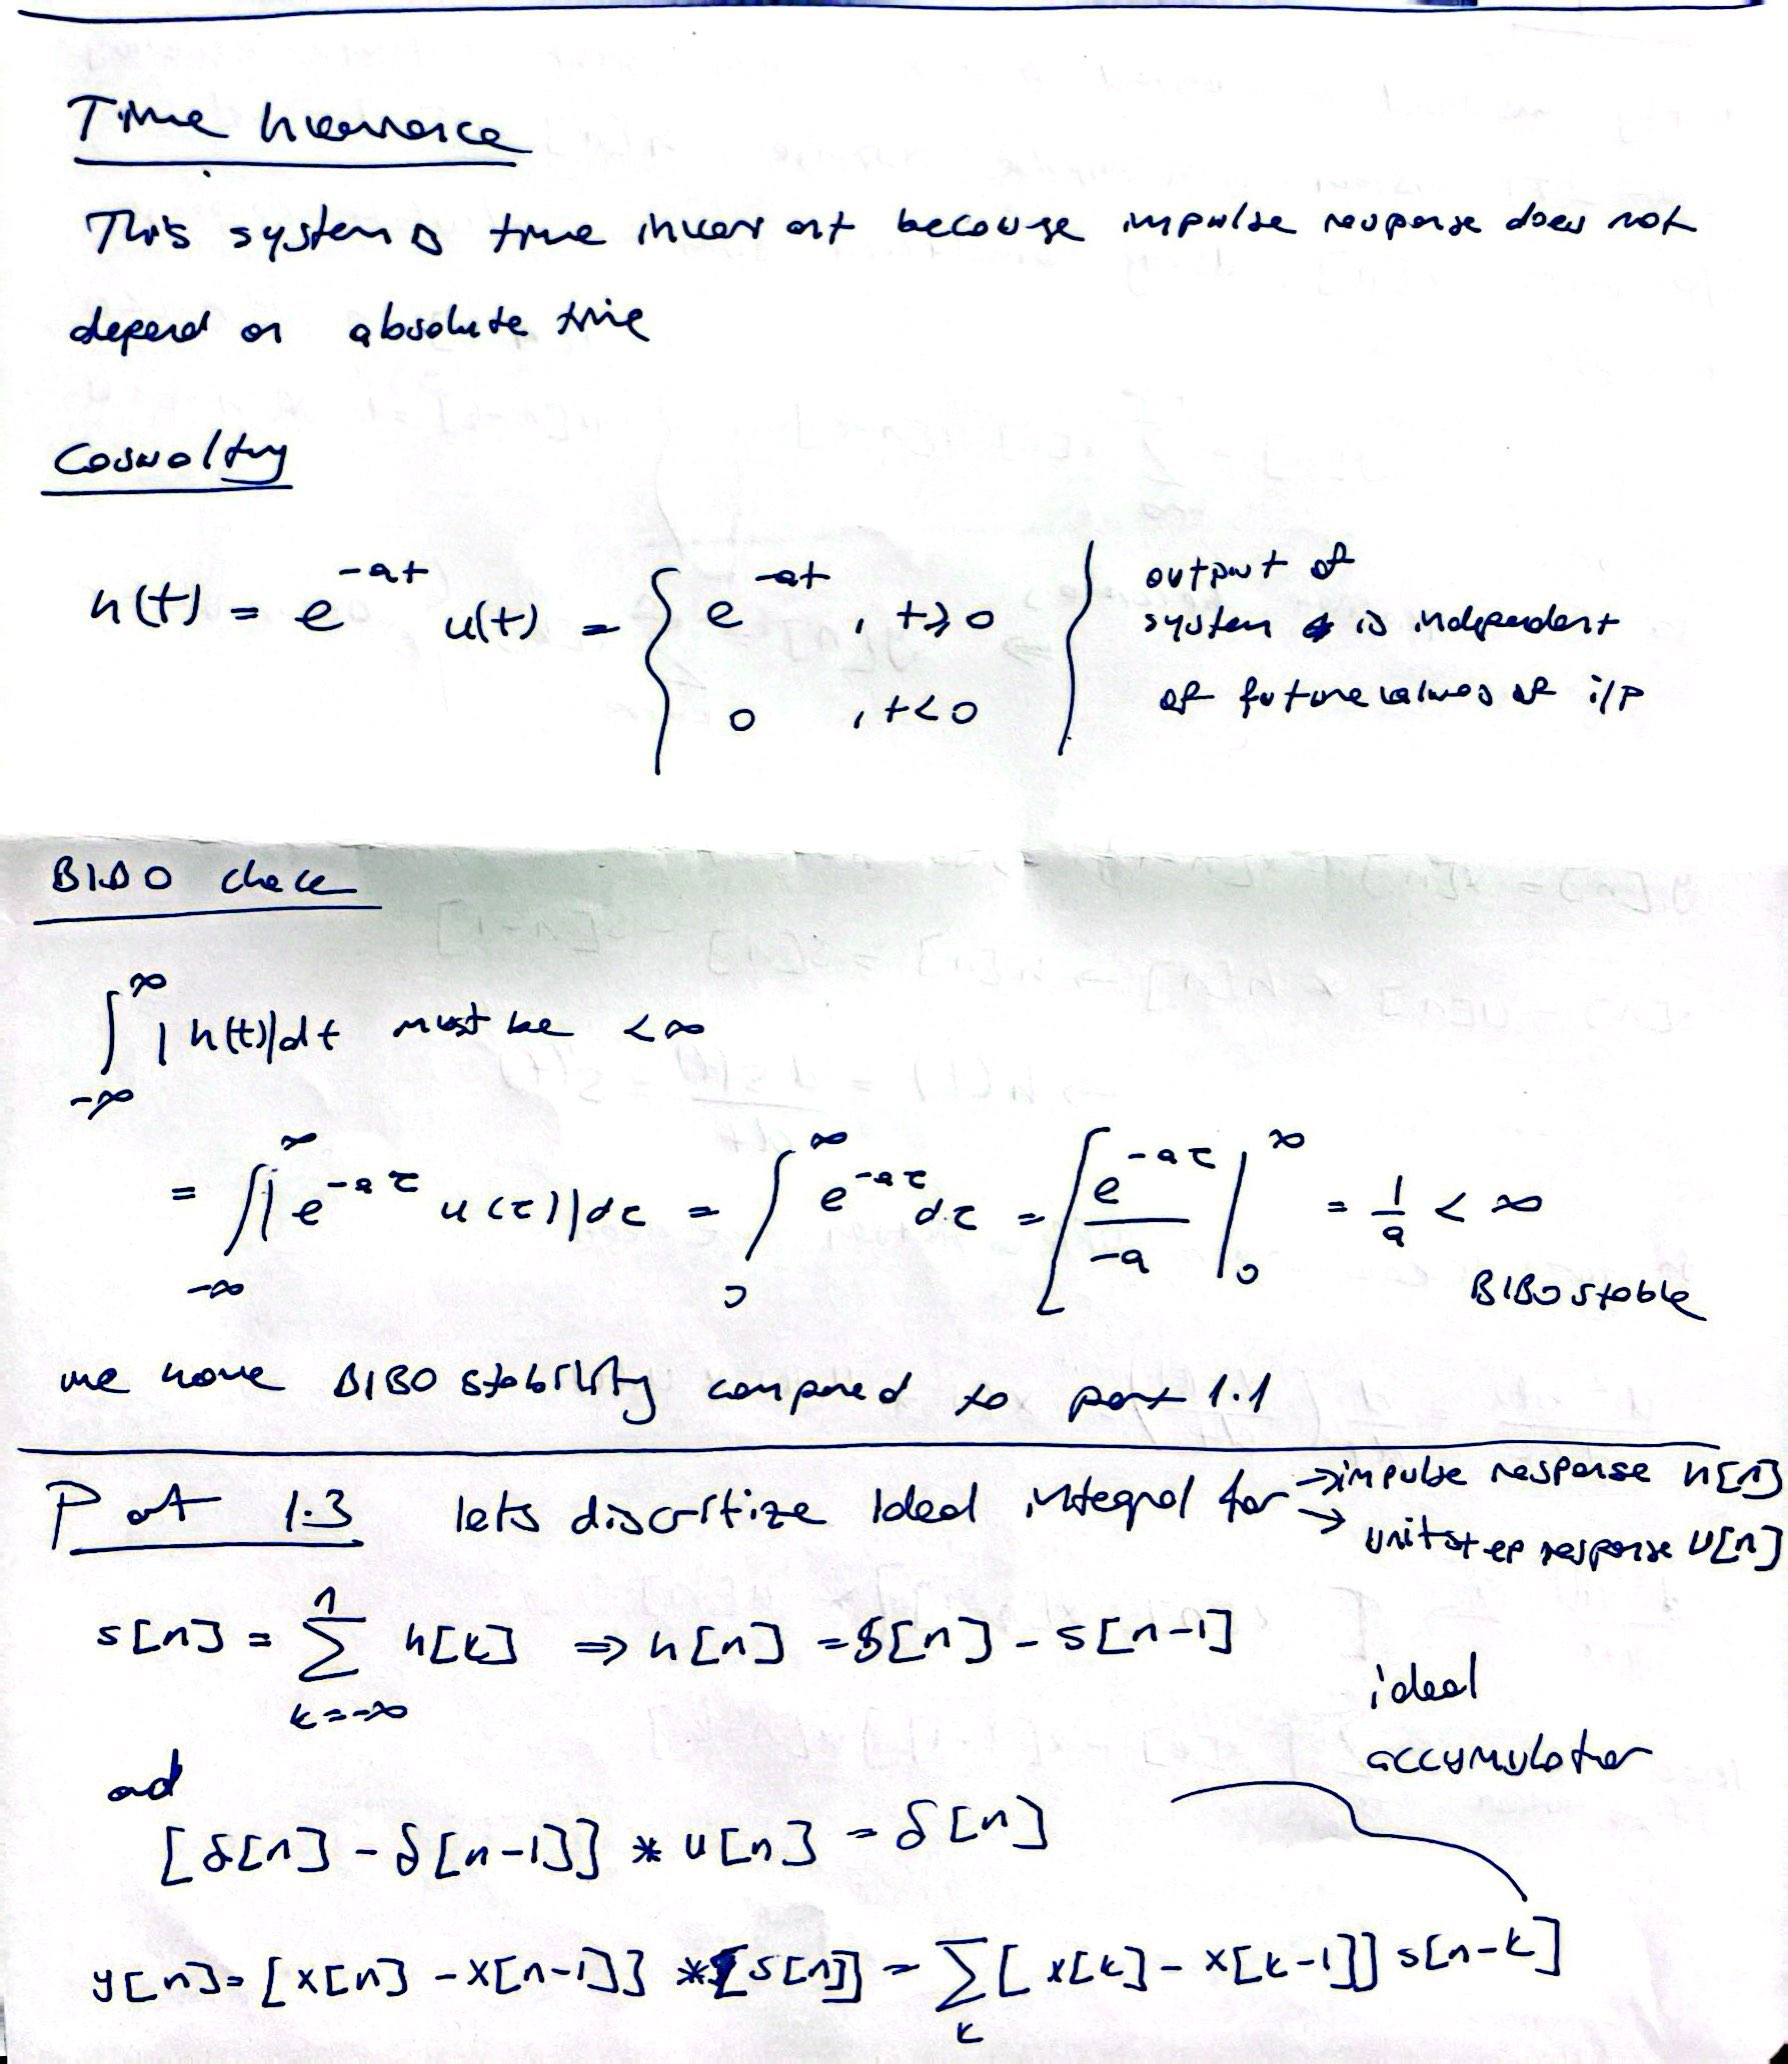 Time Invariance
This system is time invariant because impulse response does not
depend on absolute time
Causality
h(t) = e^{-at} u(t) = { e^{-at} , t≥0
0 , t<0
output of
system is independent
of future values of i/p
BIBO check
∫_{-∞}^{∞} |h(t)|dt must be < ∞
= ∫_{-∞}^{∞} |e^{-aτ} u(τ)|dτ = ∫_{0}^{∞} e^{-aτ} dτ = [ e^{-aτ} / -a |_{0}^{∞} = 1/a < ∞
BIBO stable
we have BIBO stability compared to part 1.1
Part 1.3 lets discritize Ideal integral for → impulse response h[n]
→ unit step response u[n]
s[n] = ∑_{k=-∞}^{n} h[k] ⇒ h[n] = s[n] - s[n-1]
and
[δ[n] - δ[n-1]] * u[n] = δ[n]
ideal
accumulator
y[n] = [x[n] - x[n-1]] * [s[n]] = ∑_{k} [x[k] - x[k-1]] s[n-k]